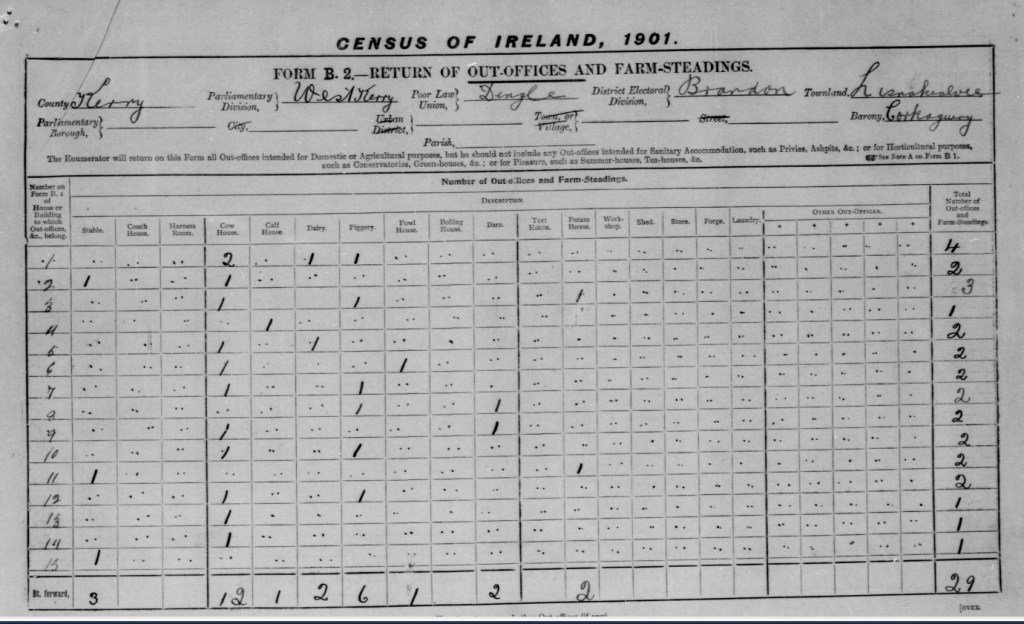 CENSUS OF IRELAND, 1901.
FORM B. 2.—RETURN OF OUT-OFFICES AND FARM-STEADINGS.
County Kerry Parliamentary Division, West Kerry Poor Law Union, Dingle District Electoral Division, Brandon Townland,
Parliamentary Borough, City, Urban District, Town, or Village, Street, Barony, Corkaguiny
Parish,
The Enumerator will return on this Form all Out-offices intended for Domestic or Agricultural purposes, but he should not include any Out-offices intended for Sanitary Accommodation, such as Privies, Ashpits, &c.; or for Horticultural purposes,
such as Conservatories, Green-houses, &c.; or for Pleasure, such as Summer-houses, Tea-houses, &c. See Note A on Form B 1.
Number on Form B. 1 of House or Building to which Out-offices, &c., belong. Number of Out-offices and Farm-Steadings. Total Number of Out-offices and Farm-Steadings.
DESCRIPTION.
Stable. Coach House. Harness Room. Cow House. Calf House. Dairy. Piggery. Fowl House. Boiling House. Barn. Turf House. Potato House. Work-shop. Shed. Store. Forge. Laundry. OTHER OUT-OFFICES.
* * * * *
1 2 1 1 4
2 1 1 2
3 1 1 1 3
4 1 1
5 1 1 2
6 1 1 2
7 1 1 2
8 1 1 2
9 1 1 2
10 1 1 2
11 1 1 2
12 1 1 2
13 1 1
14 1 1
15 1 1
Bt. forward, 3 12 1 2 6 1 2 2 29
[OVER